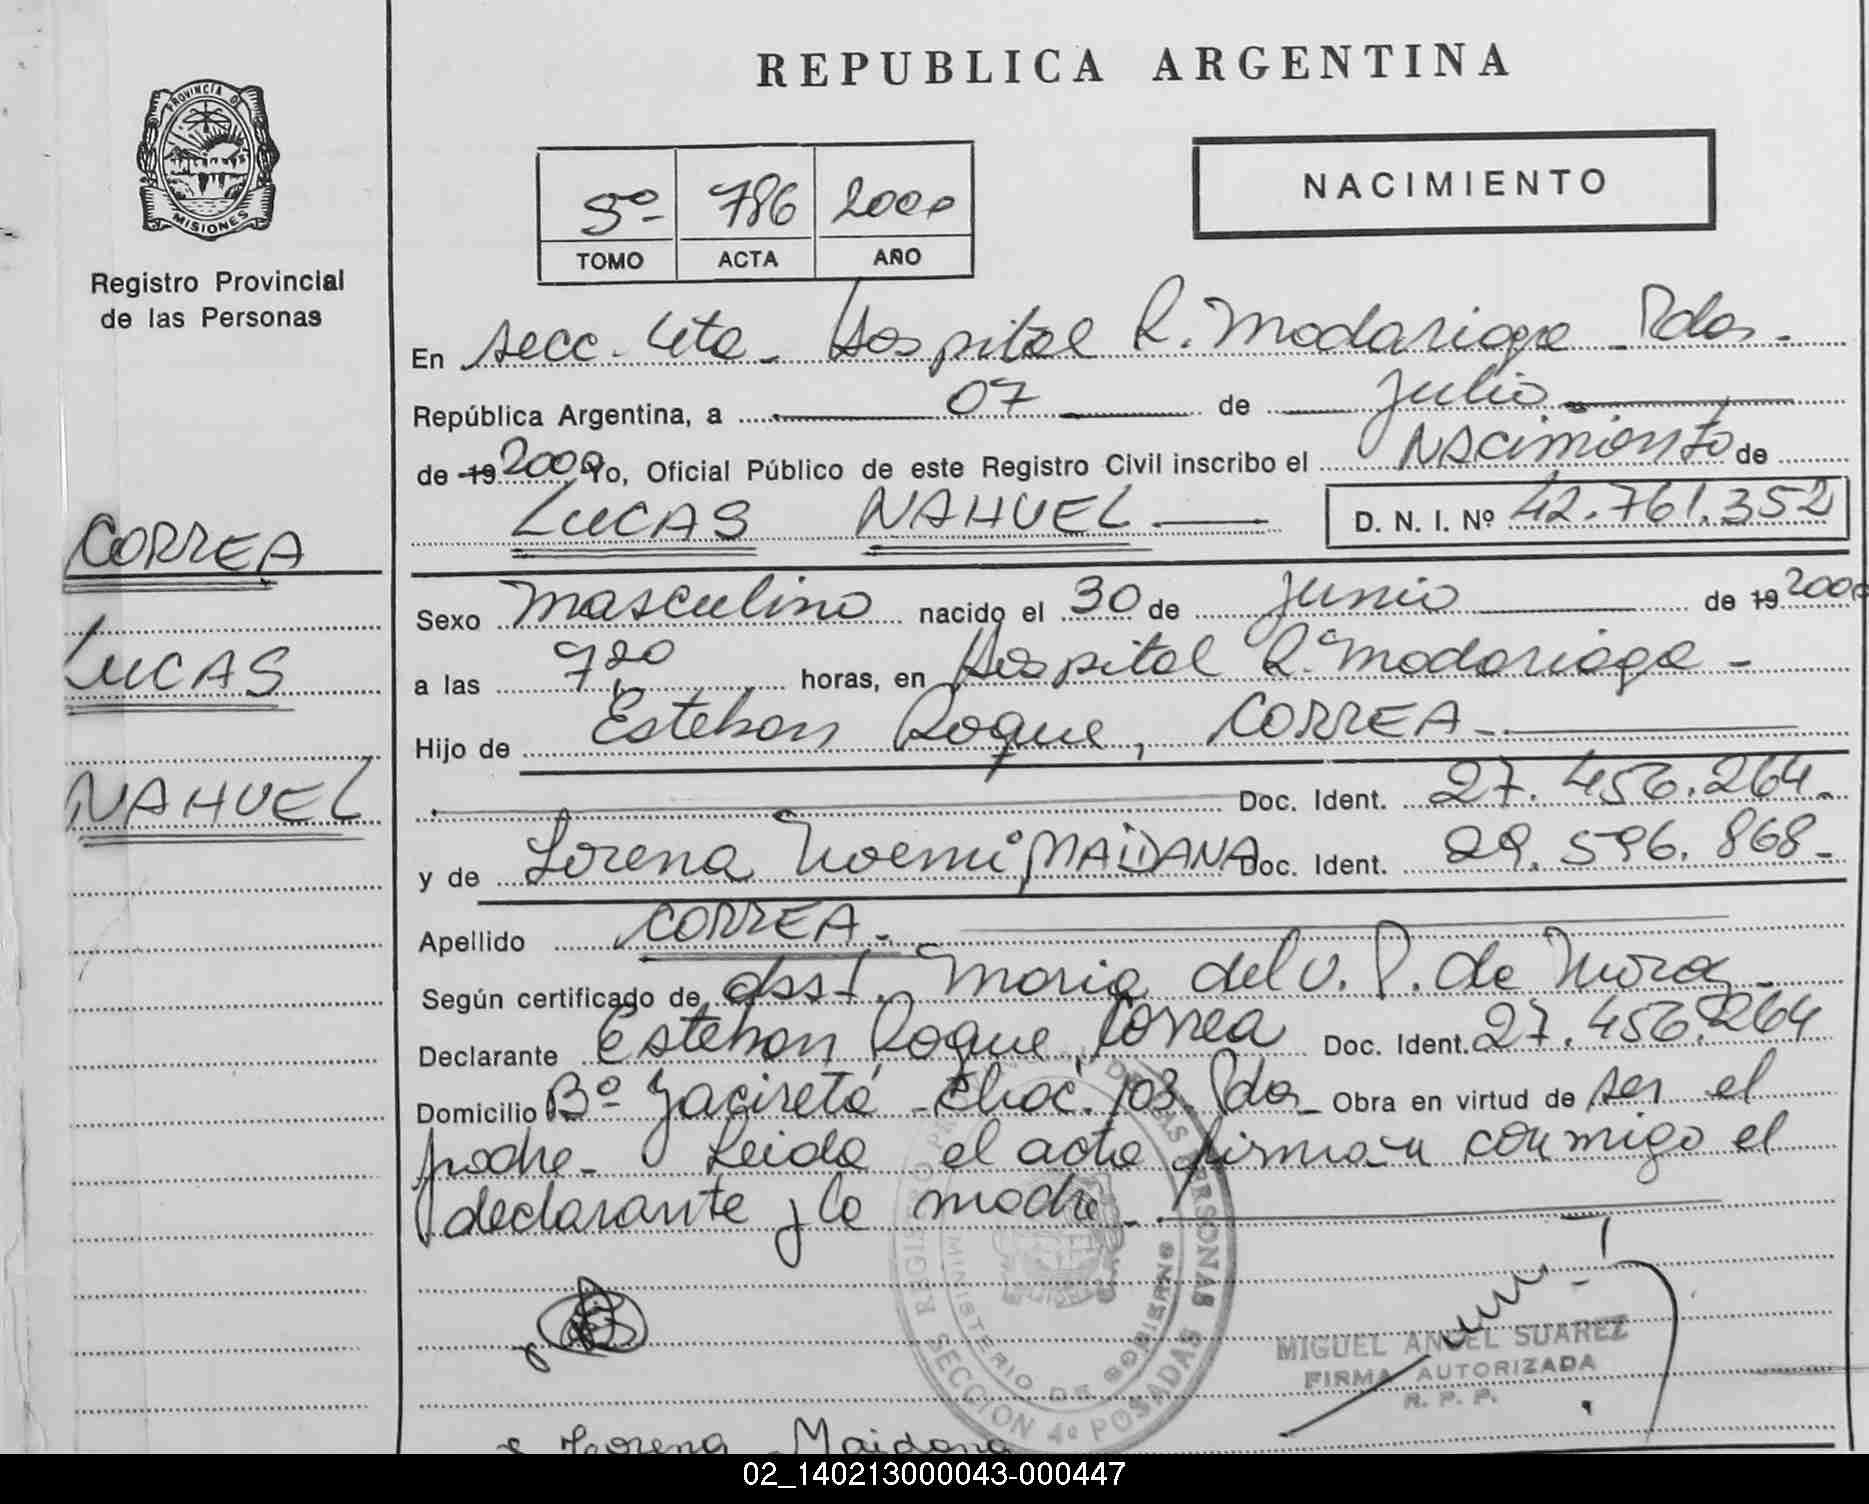 REPUBLICA ARGENTINA
PROVINCIA DE MISIONES
Registro Provincial
de las Personas
5º 786 2000
TOMO ACTA AÑO
NACIMIENTO
En secc. 4ta - Hospital R. Madariaga - Pdas -
República Argentina, a 07 de Julio
de 19 2000 Yo, Oficial Público de este Registro Civil inscribo el Nacimiento de
LUCAS NAHUEL D. N. I. Nº 42.761.352
CORREA
LUCAS
NAHUEL
Sexo Masculino nacido el 30 de Junio de 19 2000
a las 7,20 horas, en Hospital R. Madariaga -
Hijo de Esteban Roque, CORREA -
Doc. Ident. 27.456.264 -
y de Lorena Noemi MAIDANA Doc. Ident. 29.596.868 -
Apellido CORREA -
Según certificado de Obst. Maria del V. P. de Mora -
Declarante Esteban Roque, Correa Doc. Ident. 27.456.264
Domicilio Bº Yaciretá - Chac. 103. Pdas - Obra en virtud de ser el
padre - Leida el acta firman conmigo el
declarante y la madre -
REGISTRO PROVINCIAL DE LAS PERSONAS
MINISTERIO DE GOBIERNO
SECCION 4º POSADAS
MIGUEL ANGEL SUAREZ
FIRMA AUTORIZADA
R. P. P.
Lorena Maidana
02_140213000043-000447